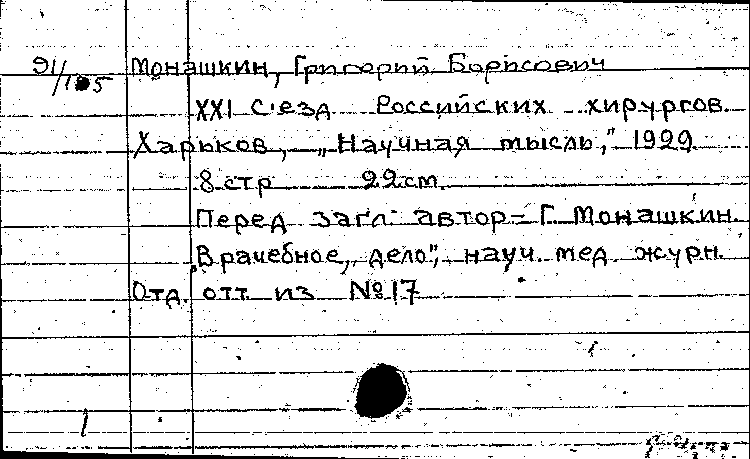 Монашкин, Григорий Борисович
XXI С'езд Российских хирургов.
Харьков, „Научная мысль," 1929.
8 стр 22 см.
Перед загл. автор – Г. Монашкин.
„Врачебное дело", науч. мед. журн.
Отд. отт. из №17
1